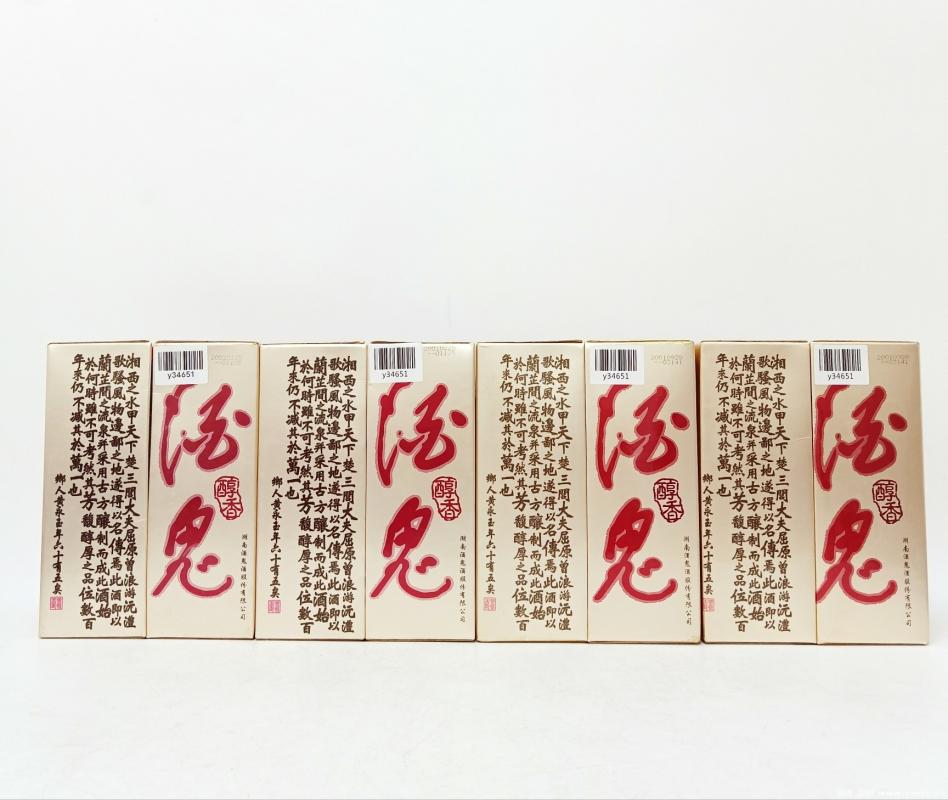 湘西之水甲天下楚三閭大夫屈原曾浪游沅澧
歌騷風物邊鄙之地遂得以名傳焉此酒即以
蘭芷間之流泉并采用古方釀制而成此酒始
於何時雖不可考然其芳馥醇厚之品位數百
年來仍不減其於萬一也
鄉人黃永玉年六十有五矣
y34651
酒鬼
醇香
湖南酒鬼酒股份有限公司
湘西之水甲天下楚三閭大夫屈原曾浪游沅澧
歌騷風物邊鄙之地遂得以名傳焉此酒即以
蘭芷間之流泉并采用古方釀制而成此酒始
於何時雖不可考然其芳馥醇厚之品位數百
年來仍不減其於萬一也
鄉人黃永玉年六十有五矣
y34651
酒鬼
醇香
湖南酒鬼酒股份有限公司
湘西之水甲天下楚三閭大夫屈原曾浪游沅澧
歌騷風物邊鄙之地遂得以名傳焉此酒即以
蘭芷間之流泉并采用古方釀制而成此酒始
於何時雖不可考然其芳馥醇厚之品位數百
年來仍不減其於萬一也
鄉人黃永玉年六十有五矣
y34651
20010920
酒鬼
醇香
湖南酒鬼酒股份有限公司
湘西之水甲天下楚三閭大夫屈原曾浪游沅澧
歌騷風物邊鄙之地遂得以名傳焉此酒即以
蘭芷間之流泉并采用古方釀制而成此酒始
於何時雖不可考然其芳馥醇厚之品位數百
年來仍不減其於萬一也
鄉人黃永玉年六十有五矣
y34651
20010920
酒鬼
醇香
湖南酒鬼酒股份有限公司